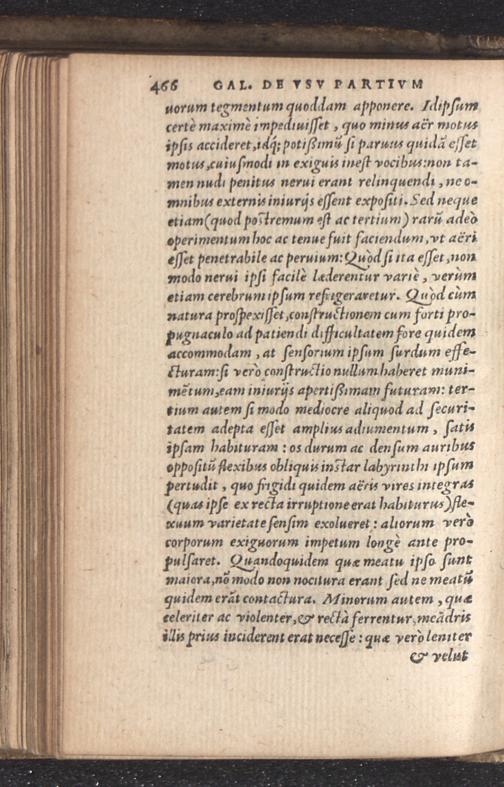 466 GAL. DE VSV PARTIVM
uorum tegmentum quoddam apponere. Idipsum
certè maximè impediuisset, quo minus aër motus
ipsis accideret, idq́; potißimũ si paruus quidã esset
motus, cuiusmodi in exiguis inest vocibus: non ta-
men nudi penitus nerui erant relinquendi, ne o-
mnibus externis iniurijs essent expositi. Sed neque
etiam (quod postremum est ac tertium) rarũ adeò
operimentum hoc ac tenue fuit faciendum, vt aëri
esset penetrabile ac peruium: Quòd si ita esset, non
modo nerui ipsi facilè læderentur variè, verùm
etiam cerebrum ipsum refrigeraretur. Quòd cùm
natura prospexisset, constructionem cum forti pro-
pugnaculo ad patiendi difficultatem fore quidem
accommodam, at sensorium ipsum surdum effe-
cturam: si verò constructio nullum haberet muni-
mẽtum, eam iniurijs apertißimam futuram: ter-
tium autem si modo mediocre aliquod ad securi-
tatem adepta esset amplius adiumentum, satis
ipsam habituram: os durum ac densum auribus
oppositũ flexibus obliquis instar labyrinthi ipsum
pertudit, quo frigidi quidem aëris vires integras
(quas ipse ex recta irruptione erat habiturus) fle-
xuum varietate sensim exolueret: aliorum verò
corporum exiguorum impetum longè ante pro-
pulsaret. Quandoquidem quæ meatu ipso sunt
maiora, nõ modo non nocitura erant sed ne meatũ
quidem erãt contactura. Minorum autem, quæ
celeriter ac violenter, & rectà ferrentur, meãdris
illis prius inciderent erat necesse: quæ verò leniter
& velut